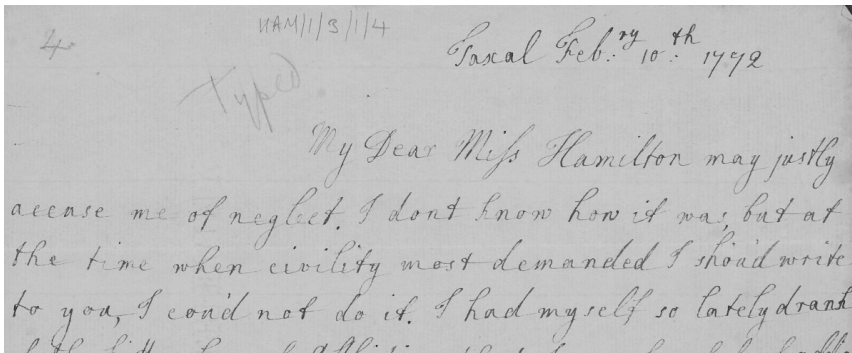 4
HAM/1/3/1/4
Typed
Taxal Feb:ry 10:th 1772
My Dear Miſs Hamilton may justly
accuse me of neglect. I dont know how it was, but at
the time when civility most demanded I shou'd write
to you, I cou'd not do it. I had myself so lately drank